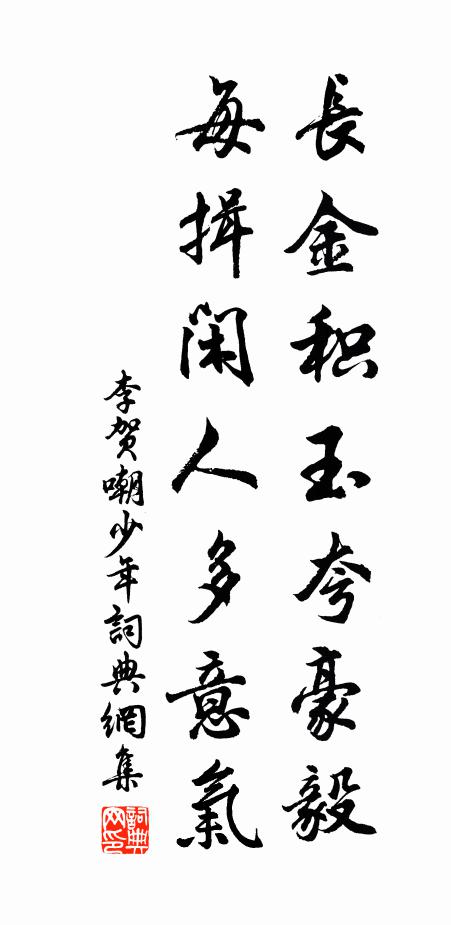 長金积玉夸豪毅
每揖闲人多意氣
李贺嘲少年詞典網集
詞典网印